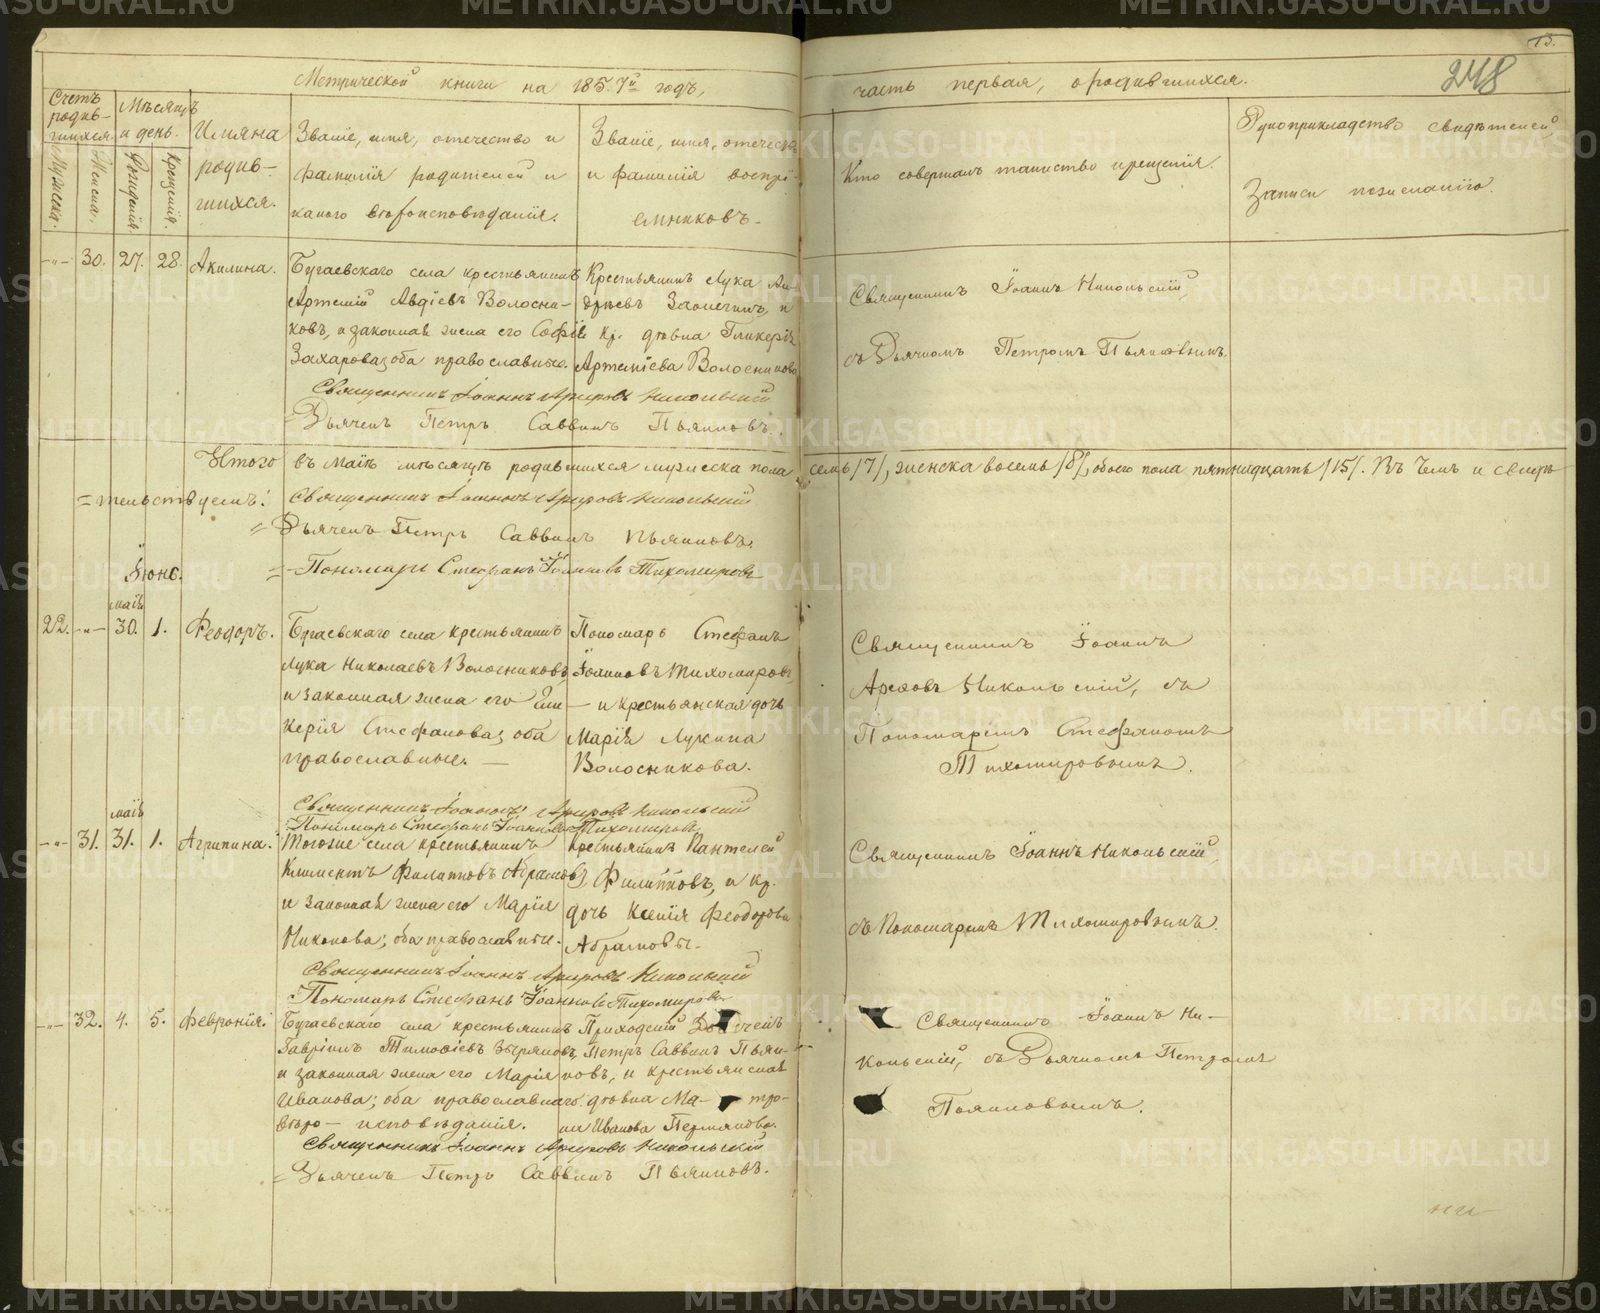 13.
248
Метрической книги на 1857й годъ,
часть первая, о родившихся.
Счетъ родив-
шихся.
Мужеска.
Женска.
Мѣсяцъ
и день.
Рожденія.
Крещенія.
Имяна
родив-
шихся.
Званіе, имя, отечество и
фамилія родителей и
какого вѣроисповѣданія.
Званіе, имя, отечество
и фамилія воспрі-
емниковъ.
Кто совершалъ таинство крещенія.
Рукоприкладство свидѣтелей
записи по желанію.
-"- 30. 27. 28. Акилина.
Бугаевскаго села крестьянинъ
Артемій Авдіевъ Волосни-
ковъ, и законная жена его Софія
Захарова; оба православные.
Крестьянинъ Лука Ан-
дреевъ и
кр. дѣвка Гликерія
Артеміева Волосникова
Священникъ Іоаннъ Никольскій,
съ Дьячкомъ Петромъ Пьянковымъ.
Священникъ Іоаннъ Никольскій
Дьячекъ Петръ Саввинъ Пьянковъ.
Итого въ маіѣ мѣсяцѣ родившихся мужеска пола семь /7/, женска восемь /8/, обоего пола пятнадцать /15/. Въ чемъ и свидѣ-
=тельствуемъ:
Священникъ Іоаннъ Никольскій
=Дьячекъ Петръ Саввинъ Пьянковъ.
=Пономарь Стефанъ Іоанновъ Тихомировъ
Іюнь.
маія
22. -"- 30. 1. Феодоръ.
Бугаевскаго села крестьянинъ
Лука Николаевъ Волосниковъ,
и законная жена его Гли-
керія Стефанова; оба
православные.
Пономарь Стефанъ
Іоанновъ Тихомировъ,
и крестьянская дочь
Марія Лукина
Волосникова.
Священникъ Іоаннъ
Никольскій, съ
Пономаремъ Стефаномъ
Тихомировымъ.
Священникъ Іоаннъ Никольскій
Пономарь Стефанъ Іоанновъ Тихомировъ
маія
-"- 31. 31. 1. Агрипина.
Тогоже села крестьянинъ
Климентъ Филиповъ Абрамовъ,
и законная жена его Марія
Никонова; оба православные.
Крестьянинъ Пантелей
Филиповъ, и кр.
дочь Ксенія Феодорова
Абрамовы.
Священникъ Іоаннъ Никольскій,
съ Пономаремъ Тихомировымъ.
Священникъ Іоаннъ Никольскій
Пономарь Стефанъ Іоанновъ Тихомировъ
-"- 32. 4. 5. Феврония.
Бугаевскаго села крестьянинъ
Гавріилъ Тимофіевъ Зыряновъ,
и законная жена его Марія
Иванова; оба православнаго
вѣро-исповѣданія.
Приходскій Дьячекъ
Петръ Саввинъ Пьян-
ковъ, и крестьянская
дѣвка Ма- тро-
на Иванова Пермякова.
Священникъ Іоаннъ Ни-
кольскій, съ Дьячкомъ Петромъ
Пьянковымъ.
Священникъ Іоаннъ Никольскій
=Дьячекъ Петръ Саввинъ Пьянковъ.
METRIKI.GASO-URAL.RU